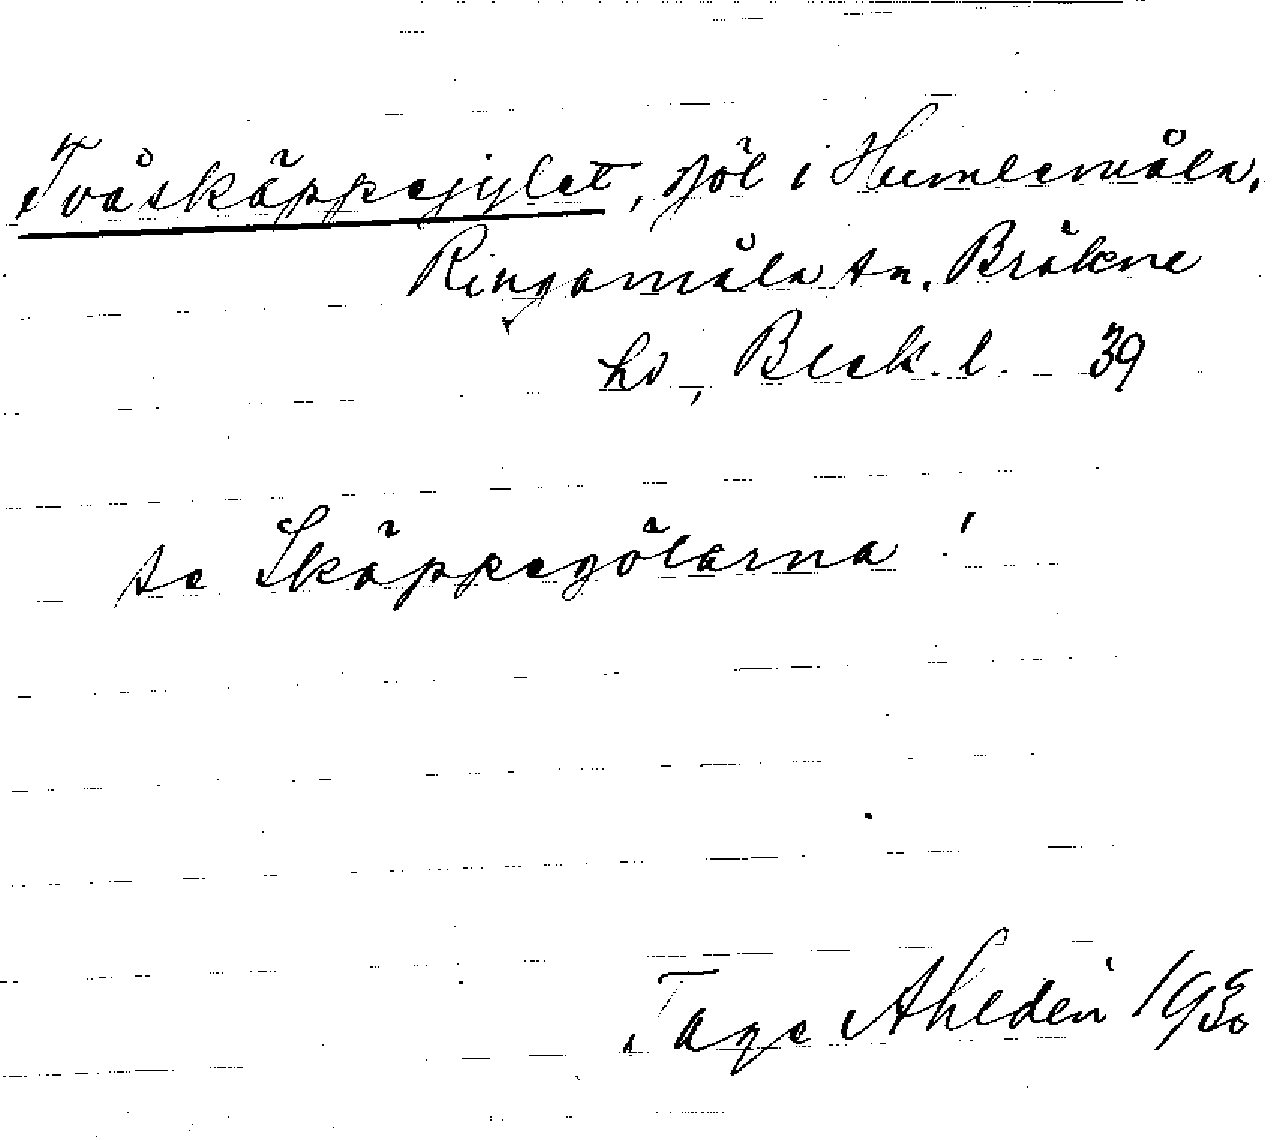 Tvåskäppejylet, göl i Humlemåla,
Ringamåla sn. Bräkne
hd, Blek. l. 39
se Skäppegölarna!
Tage Ahldén 1930